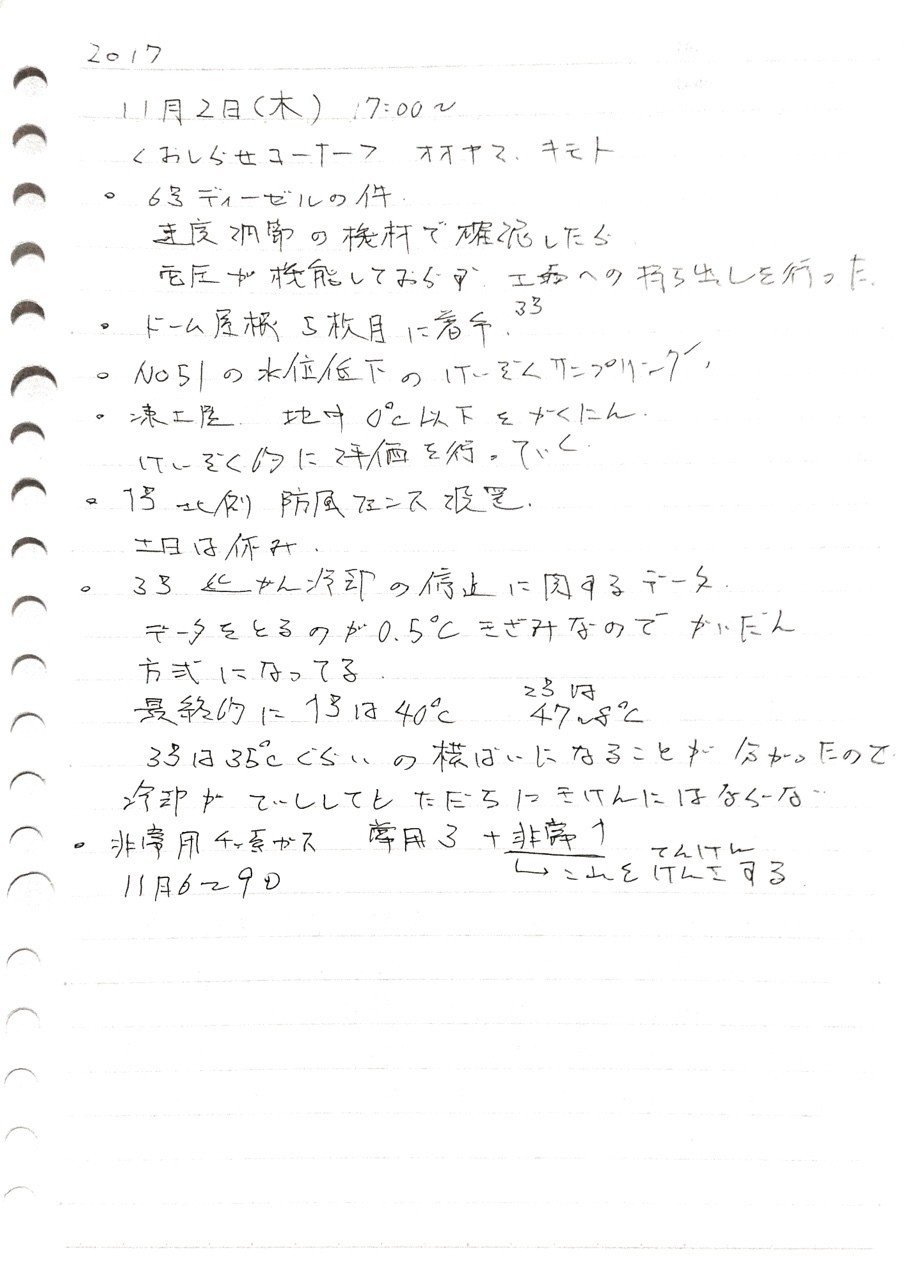 2017
11月2日(木) 17:00〜
<おしらせコーナー> オオヤマ、キモト
• 6号ディーゼルの件.
速度調節の機材で確認したら
電圧が機能しておらず 工場への持ち出しを行った.
• ドーム屋根 5枚目に着手. 3号
• NO51の水位低下のけいぞくサンプリング,
• 凍土壁. 地中 0℃以下をかくにん.
けいぞく的に評価を行っていく.
• 1号 北側 防風フェンス設置.
土日は休み.
• 3号 冷却の停止に関するデータ.
データをとるのが0.5℃きざみなので かいだん
方式になってる.
最終的に 1号は40℃ 2号は 47〜8℃
3号は35℃ぐらいの横ばいになることが 分かったので
冷却がていししても ただちにきけんにはならない
• 非常用チッ素ガス 常用3+非常1
11月6〜9日 └→これをけんさする てんけん